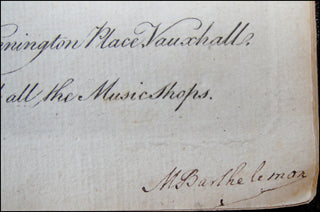 nnington Place Vauxhall.
d all, the Music Shops.
MBarthelemon